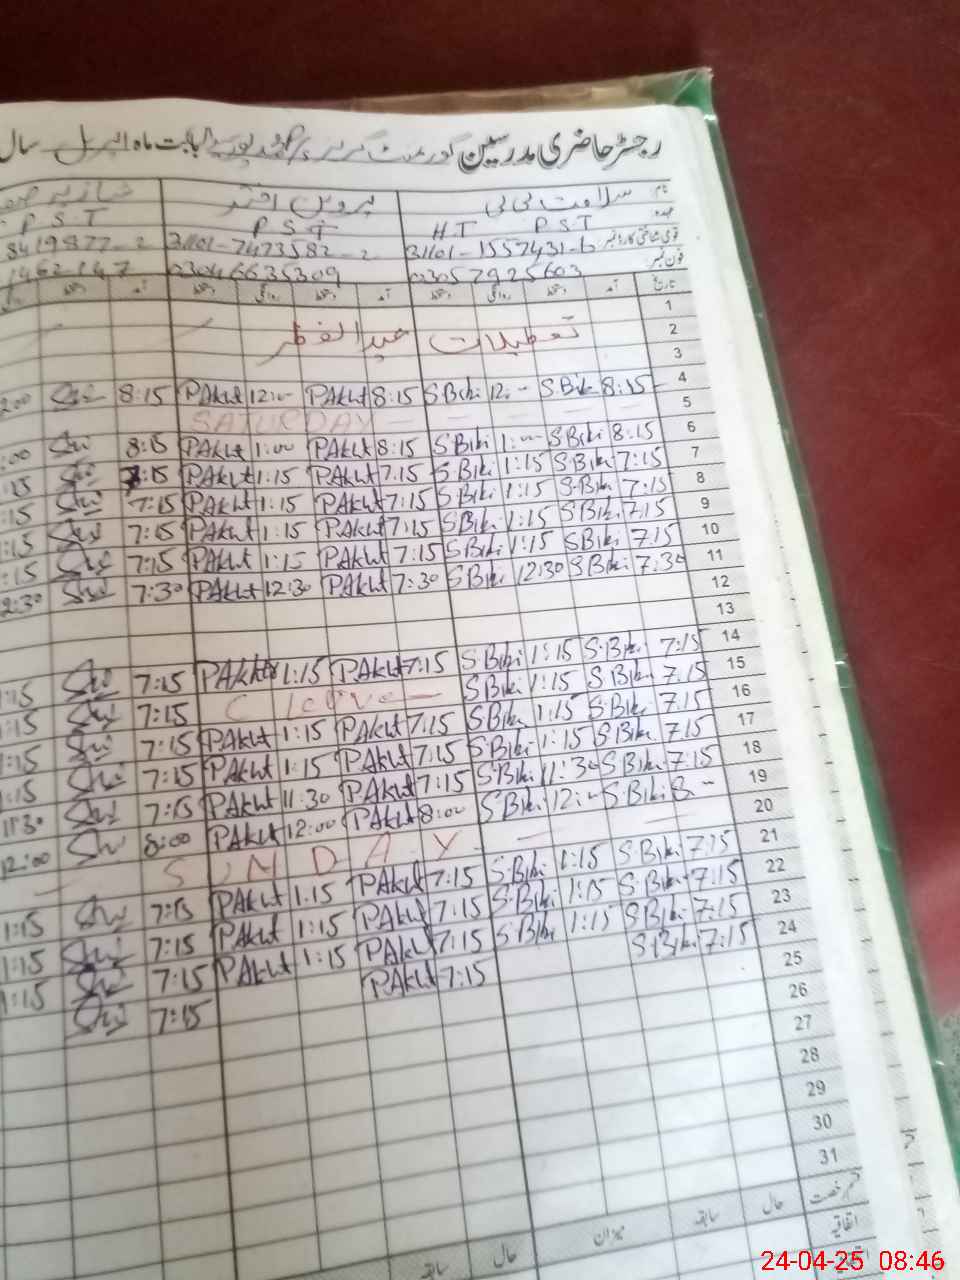 رجسٹر حاضری مدرسین گورنمنٹ گرلز بابت ماہ اپریل سال
نام سلامت بی بی پروین اختر شازیہ
عہدہ H T P S T P S T P S T
قومی شناختی کارڈ نمبر 31101-1557431-6 31101-7473582-2 8419877-2
فون نمبر 03057925603 03046635309 1462147
تاریخ آمد دستخط روانگی دستخط آمد دستخط روانگی دستخط آمد دستخط
1
2 تعطیلات عید الفطر
3
4 8:15 S.Bibi 12:- S.Bibi 8:15 PAkht 12:- PAkht 8:15
5 SATURDAY
6 8:15 S.Bibi 1:- S.Bibi 8:15 PAkht 1:00 PAkht 8:15 :00
7 7:15 S.Bibi 1:15 S.Bibi 7:15 PAkht 1:15 PAkht 7:15 :15
8 7:15 S.Bibi 1:15 S.Bibi 7:15 PAkht 1:15 PAkht 7:15 :15
9 7:15 S.Bibi 1:15 S.Bibi 7:15 PAkht 1:15 PAkht 7:15 :15
10 7:15 S.Bibi 1:15 S.Bibi 7:15 PAkht 1:15 PAkht 7:15 :15
11 7:30 S.Bibi 12:30 S.Bibi 7:30 PAkht 12:30 PAkht 7:30 2:30
12
13
14 7:15 S.Bibi 1:15 S.Bibi 7:15 PAkht 1:15 PAkhtr 7:15 :15
15 7:15 S.Bibi 1:15 S.Bibi C leave 7:15 :15
16 7:15 S.Bibi 1:15 S.Bibi 7:15 PAkht 1:15 PAkht 7:15 :15
17 7:15 S.Bibi 1:15 S.Bibi 7:15 PAkht 1:15 PAkht 7:15 :15
18 7:15 S.Bibi 11:30 S.Bibi 7:15 PAkht 11:30 PAkht 7:15 11:30
19 8:- S.Bibi 12:- S.Bibi 8:00 PAkht 12:00 PAkht 8:00 12:00
20 SUNDAY
21 7:15 S.Bibi 1:15 S.Bibi 7:15 PAkht 1:15 PAkht 7:15 1:15
22 7:15 S.Bibi 1:15 S.Bibi 7:15 PAkht 1:15 PAkht 7:15 1:15
23 7:15 S.Bibi 1:15 S.Bibi 7:15 PAkht 1:15 PAkht 7:15 1:15
24 7:15 S.Bibi 7:15 PAkht 7:15
25
26
27
28
29
30
31
قسم رخصت حال سابقہ میزان حال سابقہ
اتفاقیہ
24-04-25 08:46